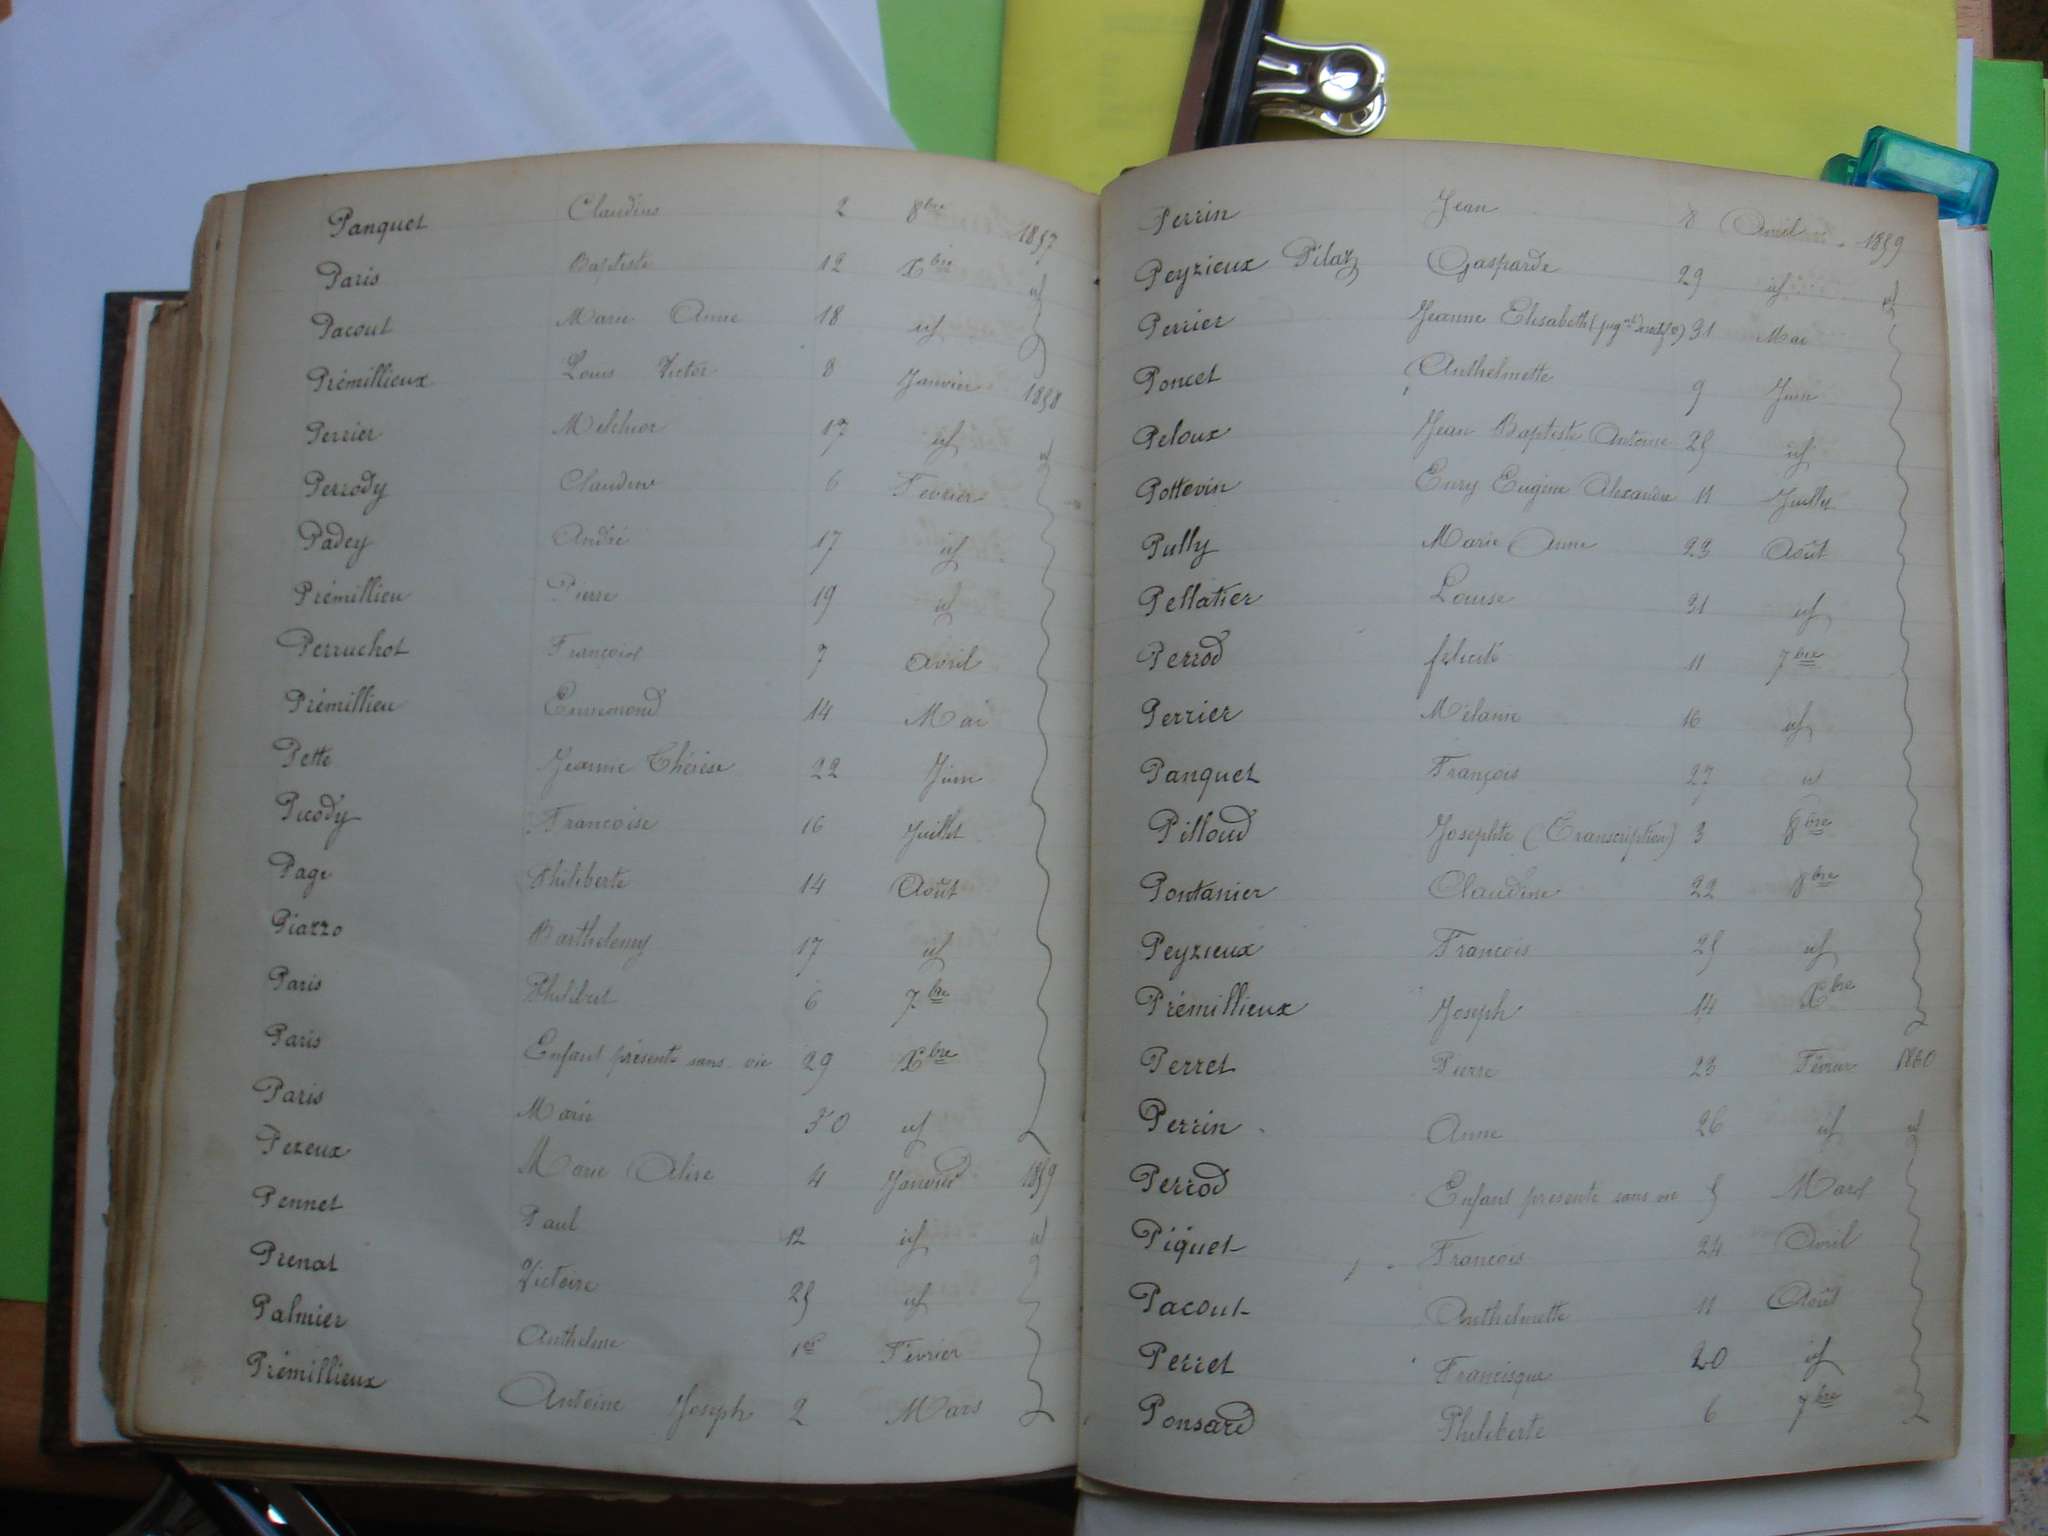 Panquet Claudius 2 8bre 1857
Paris Baptiste 12 Xbre id
Pacout Marie Anne 18 id
Prémillieux Louis Victor 8 Janvier 1858
Perrier Melchior 17 id id
Perrody Claudine 6 Février
Padey André 17 id
Prémillieu Pierre 19 id
Perruchot François 7 Avril
Prémillieu Ennemond 14 Mai
Pette Jeanne Thérèse 22 Juin
Picody Françoise 16 Juillet
Page Philiberte 14 Août
Piazzo Barthelemy 17 id
Paris Philibert 6 7bre
Paris Enfant présenté sans vie 29 Xbre
Paris Marie 30 id
Pezeux Marie Alise 4 Janvier 1859
Pennet Paul 12 id id
Prenat Victoire 25 id
Palmier Anthelme 1er Février
Prémillieux Antoine Joseph 2 Mars
Perrin Jean 8 Avril 1859
Peyzieux Pilaz Gasparde 29 id id
Perrier Jeanne Elisabeth 31 Mai
Poncet Anthelmette 9 Juin
Peloux Jean Baptiste Antoine 25 id
Pottevin Enry Eugène Alexandre 11 Juillet
Pully Marie Anne 23 Août
Pellatier Louise 31 id
Perrod félicité 11 7bre
Perrier Mélanie 16 id
Panquet François 27 id
Pilloud Josephte (Transcription) 3 8bre
Pontanier Claudine 22 8bre
Peyzieux François 25 id
Prémillieux Joseph 14 Xbre
Perret Pierre 23 Février 1860
Perrin Anne 26 id id
Perrod Enfant présenté sans vie 5 Mars
Piquet François 24 Avril
Pacout Anthelmette 11 Août
Perret Francisque 20 id
Ponsard Philiberte 6 7bre